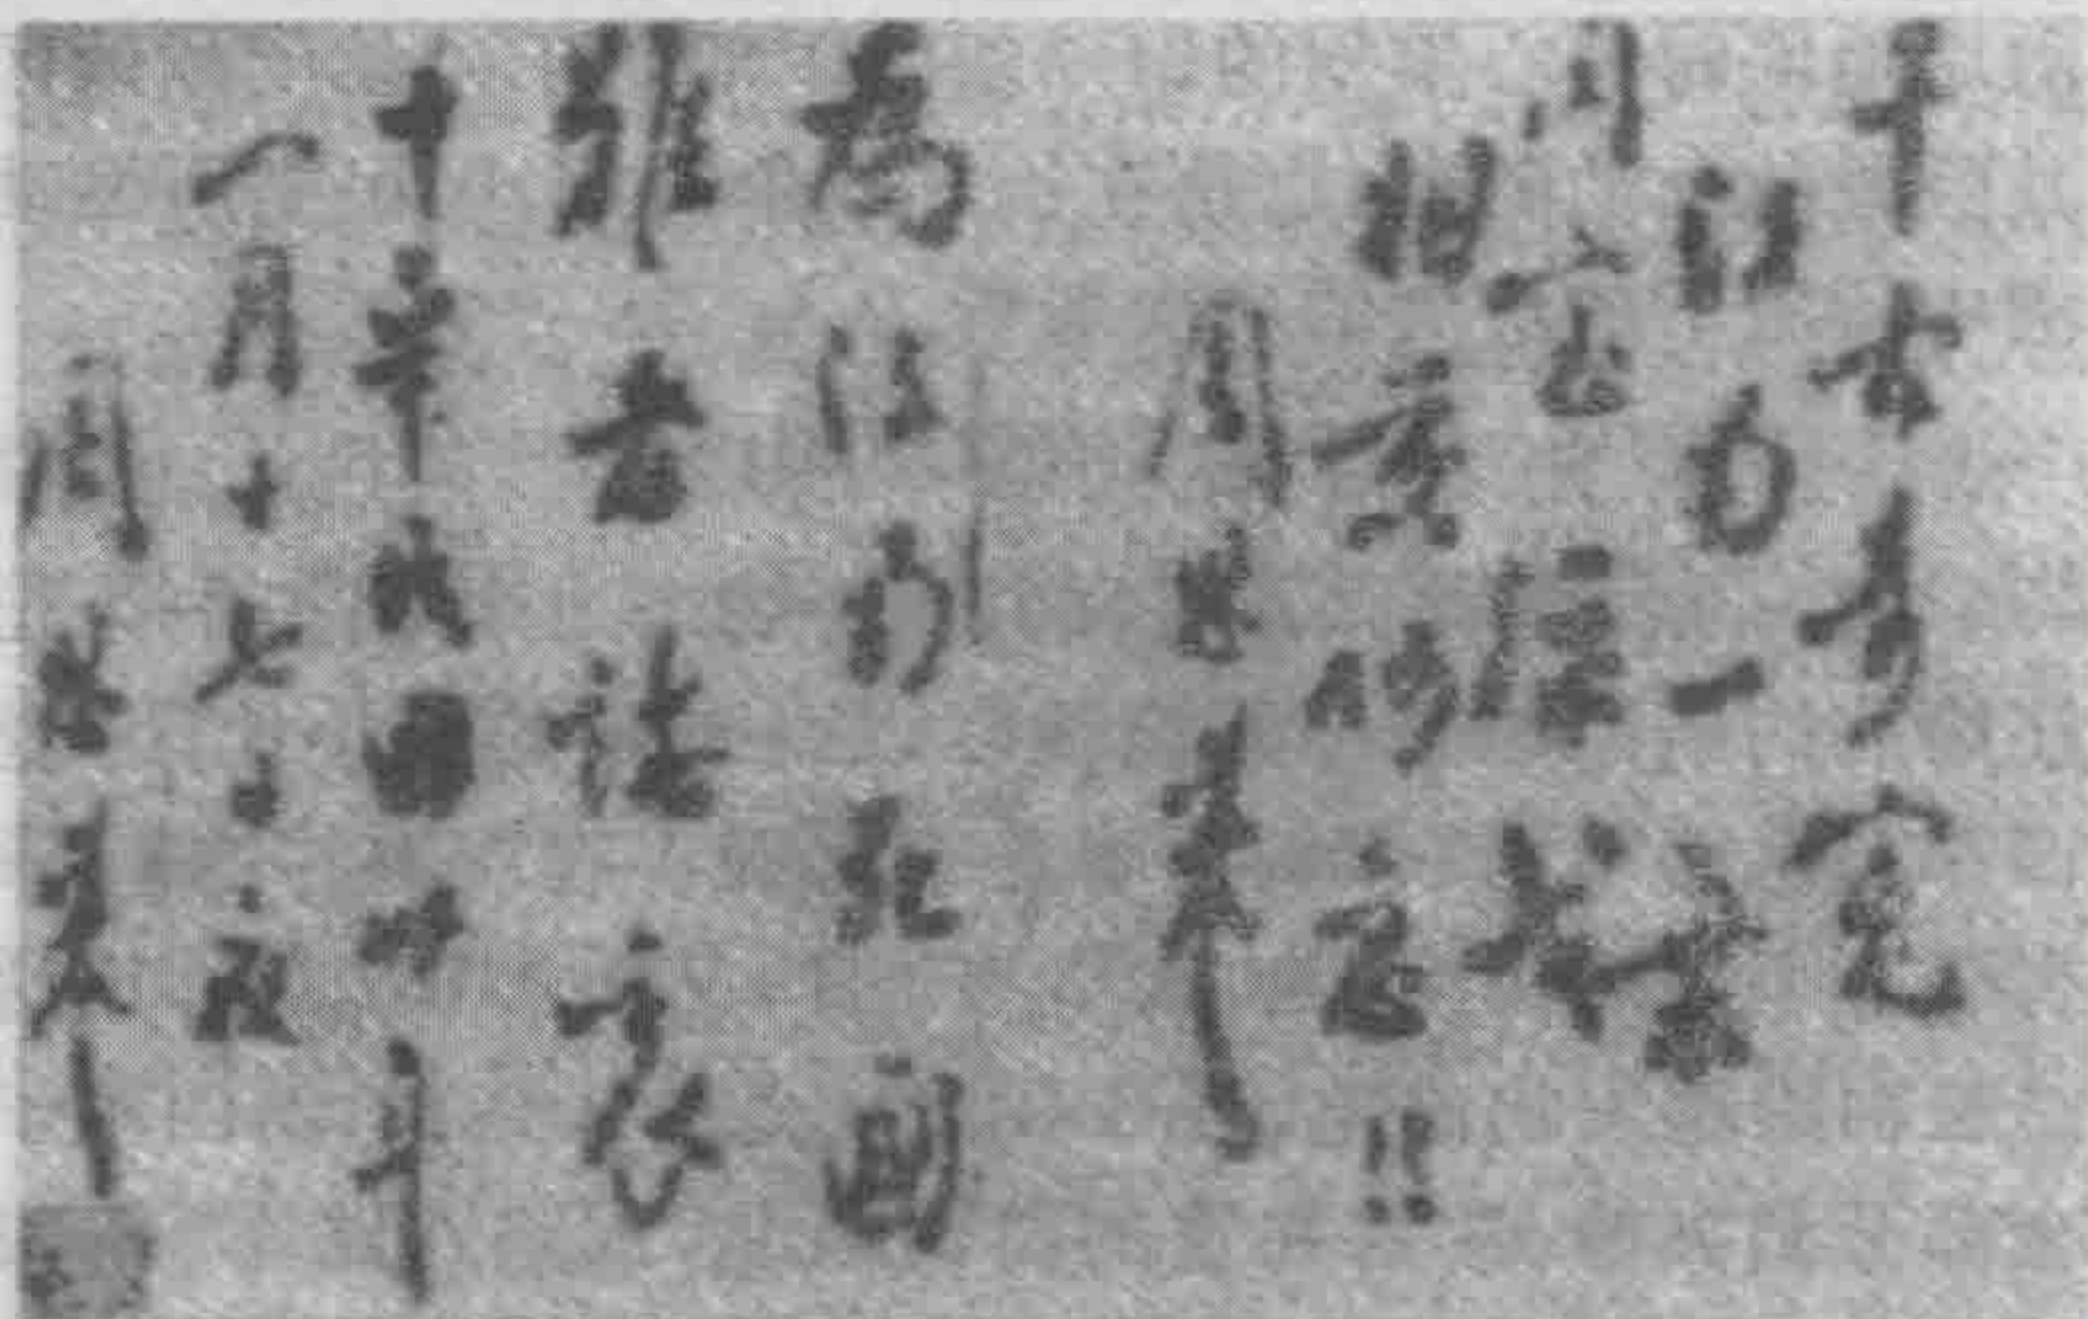 千古奇冤
江南一葉
同室操戈
相煎何急!!
周恩來
為江南死國
難者誌哀
中華民國卅年
一月十七日夜
周恩來